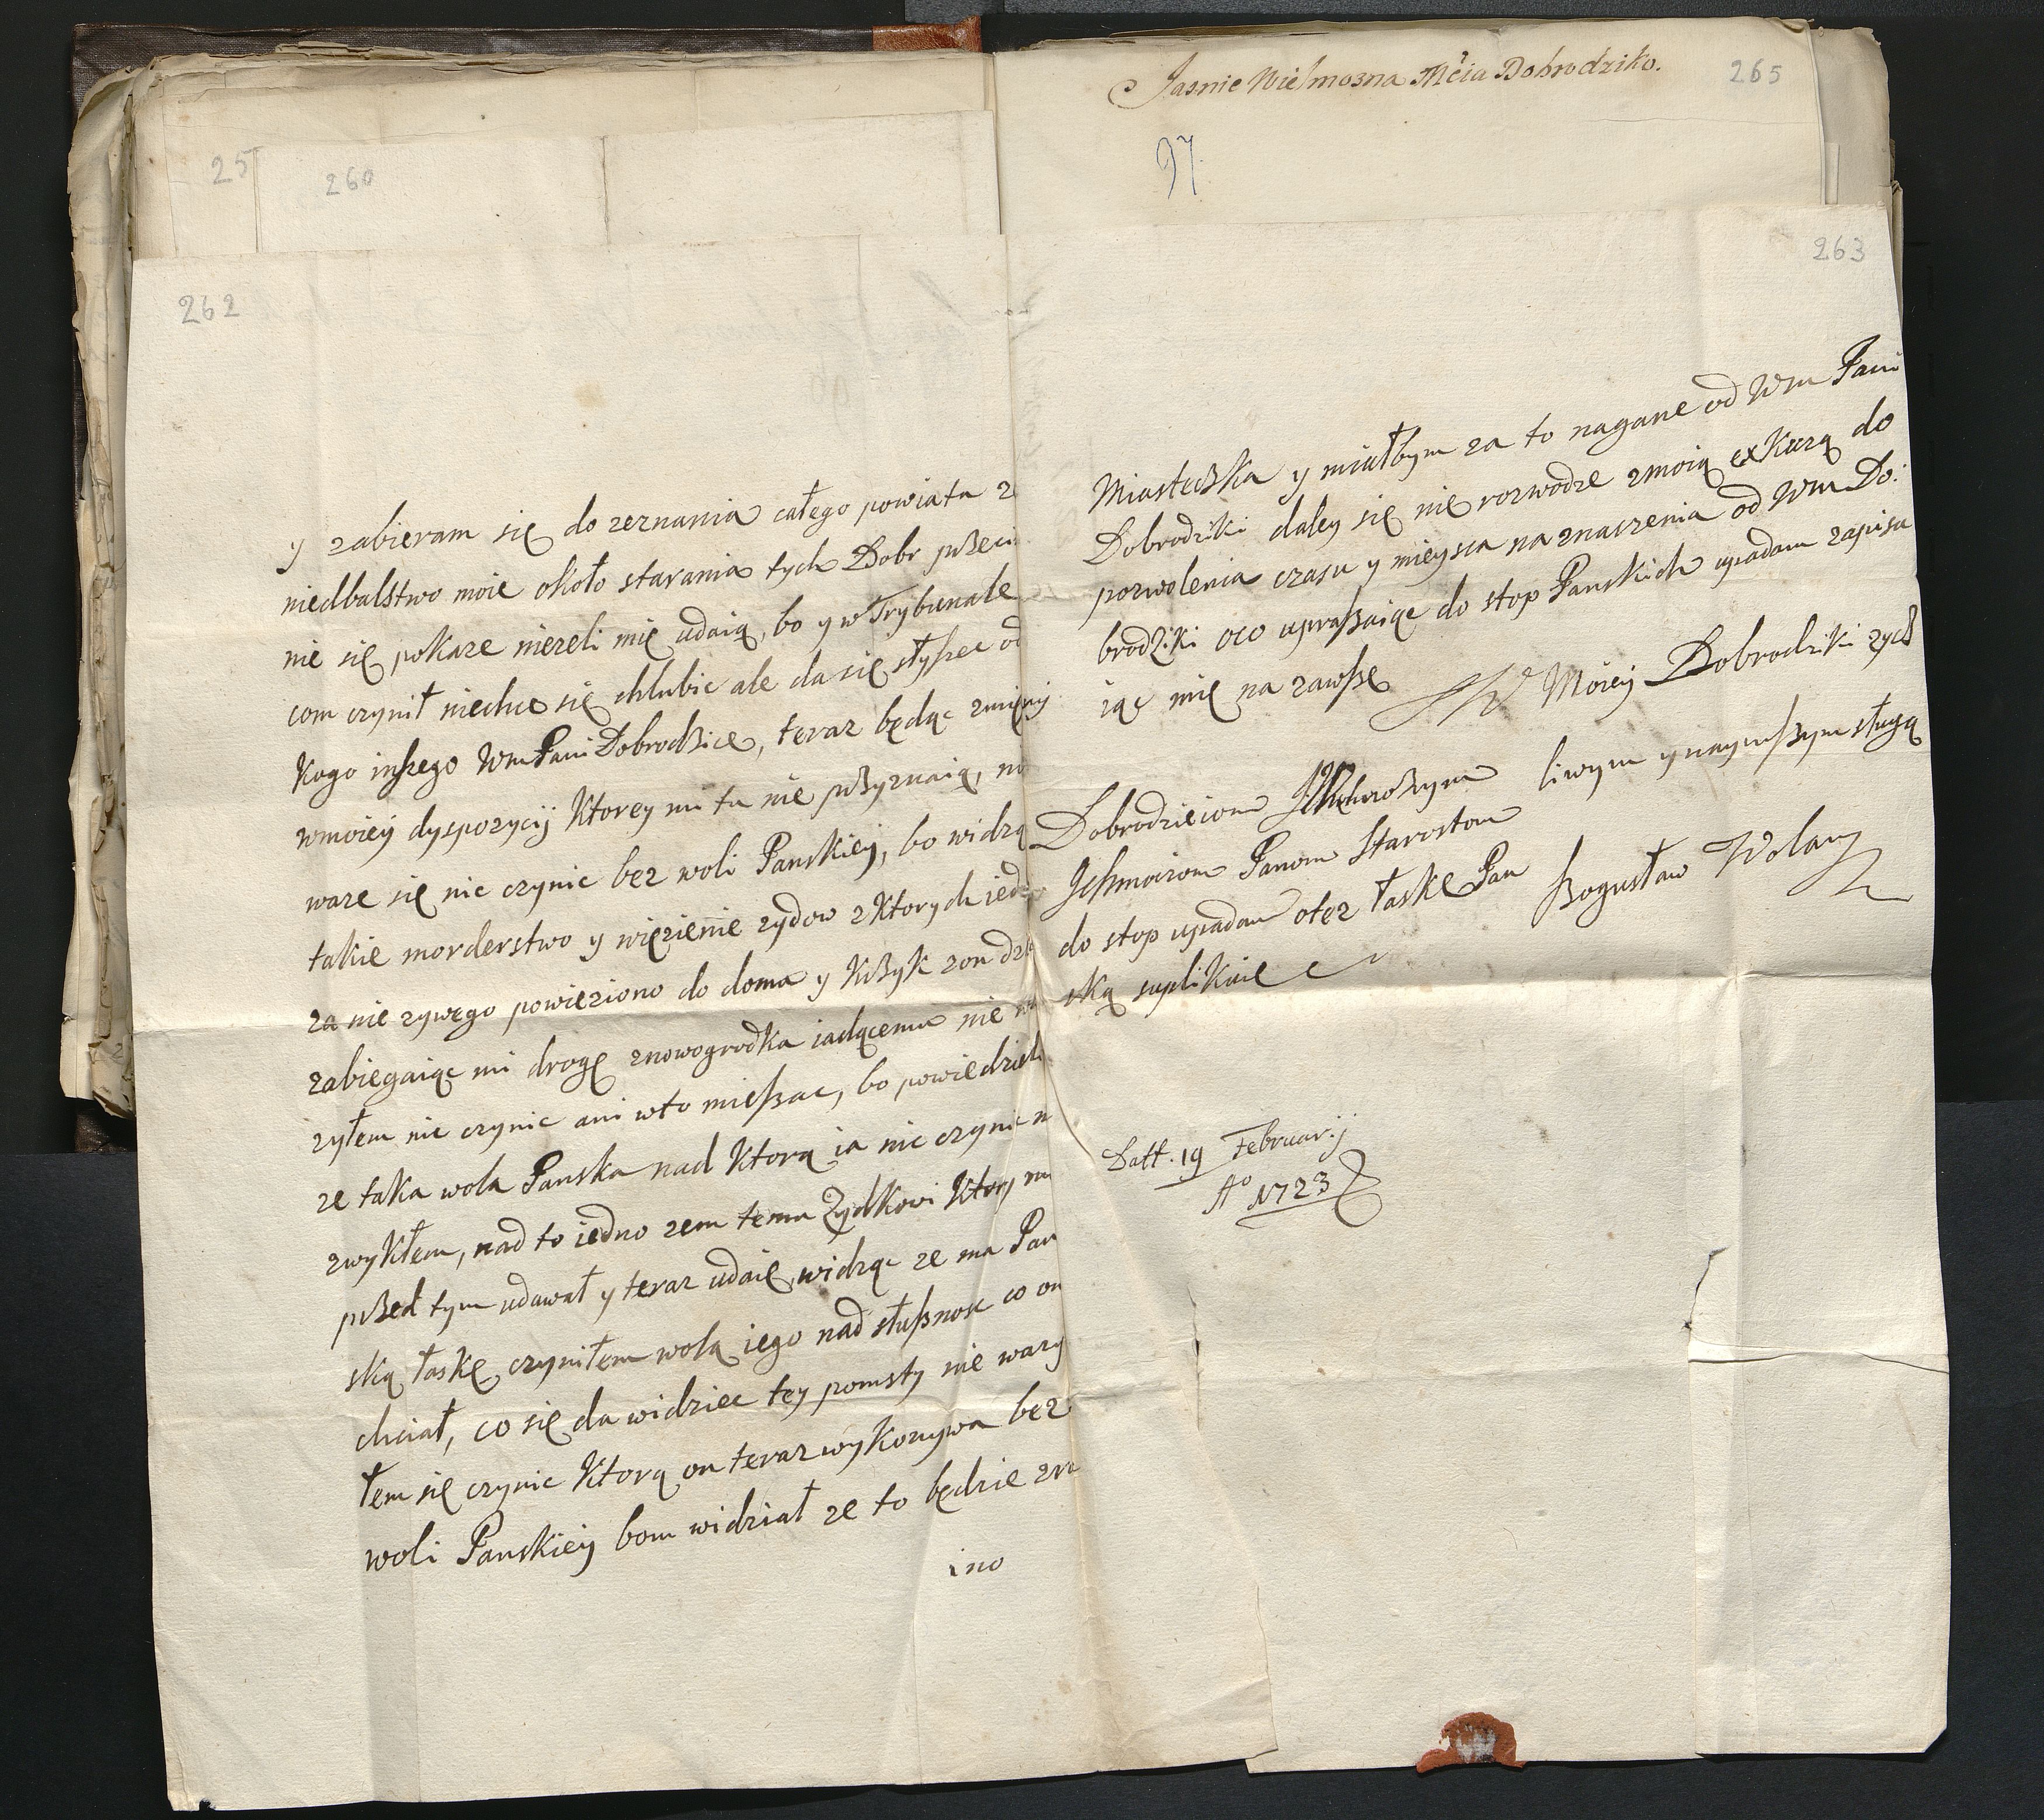 25
260
262
y zabieram się do zeznania całego powiatu z
niedbalstwo moie około starania tych Dobr przeci
nie się pokaze niezeli mię udaią, bo y w Trybunale
com czynił niechce się chlubic ale da się słyszec od
Kogo inszego WmPani Dobrodzice, teraz będąc
wmoiey dyspozycij Ktorey mi tu nie przyznaią, nie
waze się nic czynic bez woli Panskiey, bo widzą
takie morderstwo y więzienie zydow z Ktorych ied
za nie zywego powieziono do doma y Krzyk zon
zabiegaiąc mi drogę znowogrodka iadącemu nie
zyłem nic czynic ani wto mieszac, bo powiedzieli
ze taka wola Panska nad Ktorą ia nic czynic n
zwykłem, nad to iedno zem temu Zydkowi Ktory mi
przed tym udawał y teraz udaie widząc ze ma Pan
ską łaskę czyniłem wolą iego nad słusznosc co on
chciał, co się da widziec tey pomsty nie wazy
łem się czynic Ktorą on teraz wykonywa bez
woli Panskiey bom widział ze to będzie zru
ino
Jasnie Wielmozna Mcia Dobrodziko.
265
97.
263
Miasteczka y miałbym za to nagane od Wm Pani
Dobrodziki daley się nie rozwodze zmoią exKuzą do
pozwolenia czasu y mieysca na znaczenia od Wm Do:
brodziki oco upraszaiąc do stop Panskich upadam zapisu
iąc mię na zawszę
Moiey Dobrodziki zycz
Dobrodzieiom
liwym y naynszym sługą
Jchmciom Panom Starostom
do stop upadam otez łaske Pan
Bogusław Wolan
ską suplikuie
Datt. 19 Februarij
Ao 1723